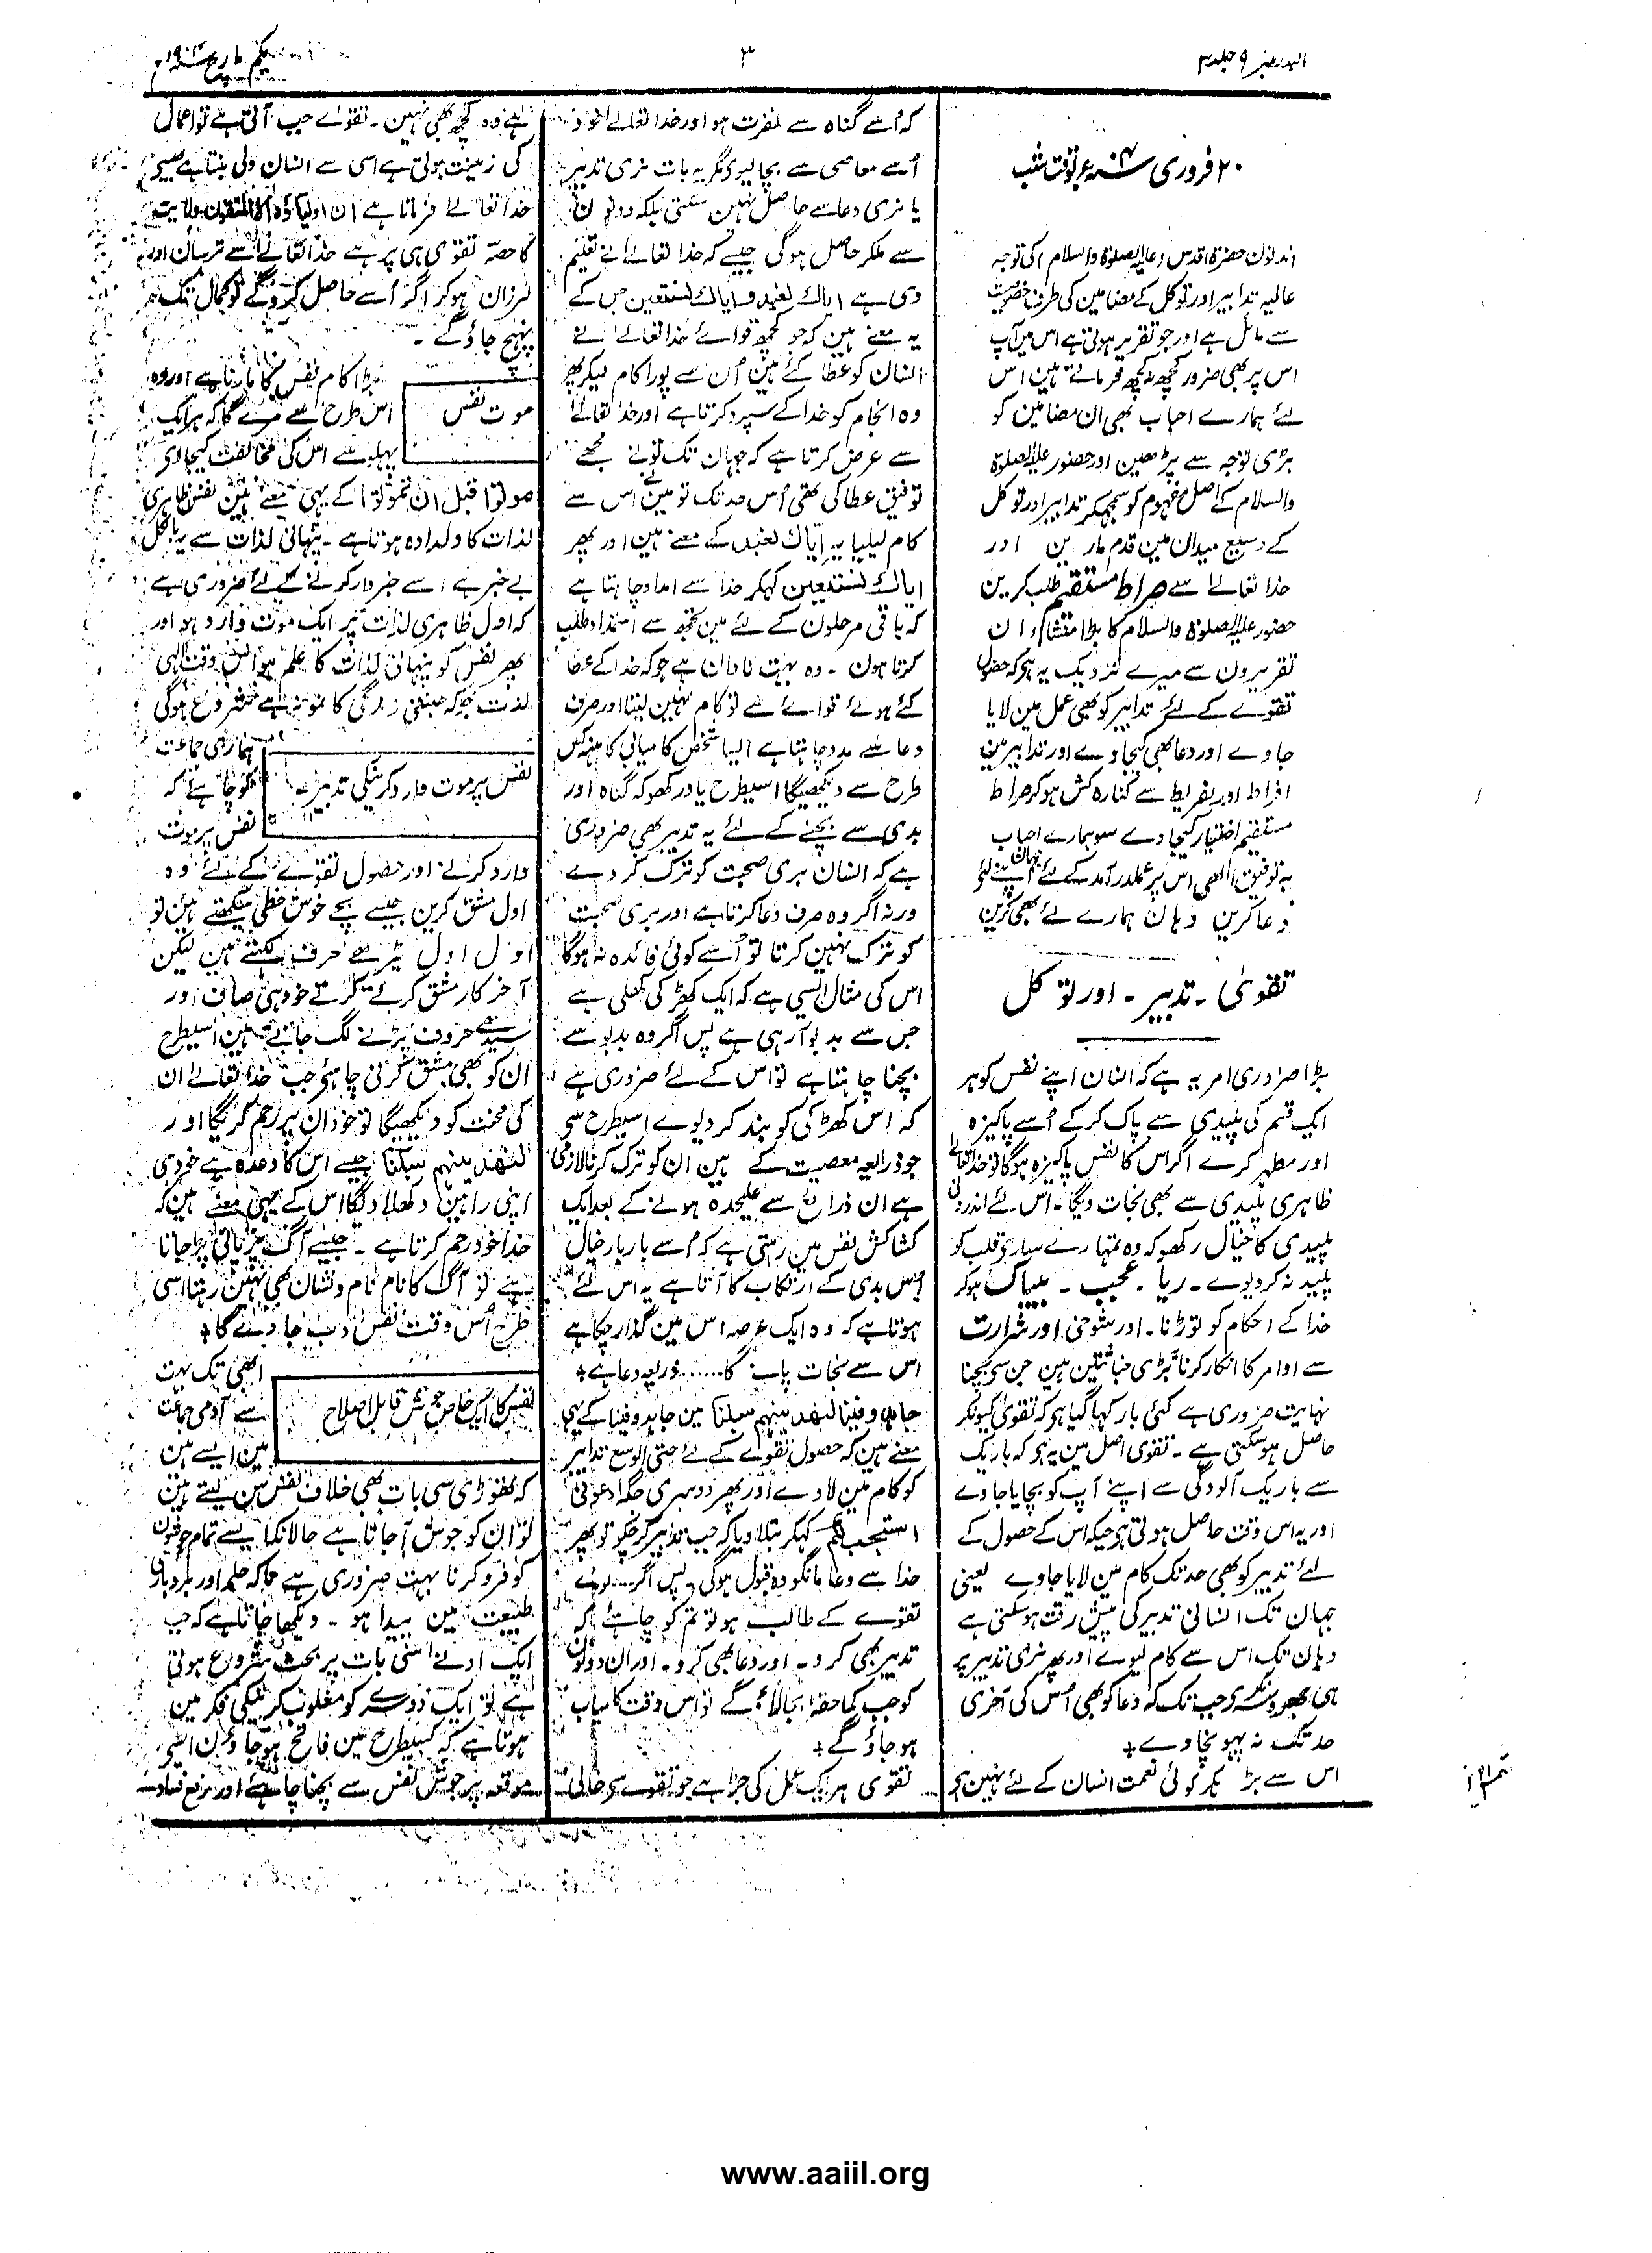 البدر نمبر ۹ جلد ۳
۳
یکم مارچ سنہ ۱۹۰۴
۲۰ فروری سنہ ۰۴ء بوقت شب
اندنون حضرۃ اقدس (علیہ الصلوۃ والسلام) کی توجہ
عالیہ تدابیر اور توکل کے مضامین کی طرف خصوصیت
سے مائل ہے اور جو تقریر ہوتی ہے اس مین آپ
اس پر بھی ضرور کچھ نہ کچھ فرماتے ہین اس
لئے ہمارے احباب بھی ان مضامین کو
بڑی توجہ سے پڑھین اور حضور علیہ الصلوۃ
والسلام کے اصل مفہوم کو سمجھکر تدابیر اور توکل
کے وسیع میدان مین قدم مارین اور
خدا تعالےٰ سے صراط مستقیم طلب کرین
حضور علیہ الصلوۃ والسلام کا بڑا منشاء ان
تقریرون سے میرے نزدیک یہ ہی کہ حصول
تقوے کے لئے تدابیر کو بھی عمل مین لایا
جاوے اور دعا بھی کیجاوے اور تدابیر مین
افراط اور تفریط سے کنارہ کش ہو کر صراط
مستقیم اختیار کیجاوے سو ہمارے احباب
بہ توفیق الٰہی اس پر عملدرآمد کے لئے جہان اپنے لئے
دعا کرین وہان ہمارے لئے بھی کرین
تقویٰ ۔ تدبیر ۔ اور توکل
بڑا ضروری امر یہ ہے کہ انسان اپنے نفس کو ہر
ایک قسم کی پلیدی سے پاک کر کے اُسے پاکیزہ
اور مطہر کرے اگر اس کا نفس پاکیزہ ہوگا تو خدا تعالےٰ
ظاہری پلیدی سے بھی نجات دیگا ۔ اس لئے اندرونی
پلیدی کا خیال رکھو کہ وہ تمہارے سارے قلب کو
پلید نہ کر دیوے ۔ ریا ۔ عجب ۔ بیباک ہو کر
خدا کے احکام کو توڑنا ۔ اور شوخی اور شرارت
سے اوامر کا انکار کرنا بڑی خباثتین ہین جن سی بچنا
نہایت ضروری ہے کئی بار کہا گیا ہی کہ تقویٰ کیونکر
حاصل ہو سکتی ہے ۔ تقوی اصل مین یہ ہی کہ باریک
سے باریک آلودگی سے اپنے آپ کو بچایا جاوے
اور یہ اس وقت حاصل ہوتی ہی جبکہ اس کے حصول کے
لئے تدبیر کو بھی حد تک کام مین لایا جاوے یعنی
جہان تک انسانی تدبیر کی پیش رفت ہو سکتی ہے
وہان تک اس سے کام لیوے اور پھر نری تدبیر پر
ہی بھروسہ نکرے جب تک کہ دعا کو بھی اُس کی آخری
حد تک نہ پہونچاوے ٭
اس سے بڑھ کر کوئی نعمت انسان کے لئے نہین ہی
کہ اُسے گناہ سے نفرت ہو اور خدا تعالےٰ خود
اُسے معاصی سے بچالیوے مگر یہ بات نری تدبیر
یا نری دعا سے حاصل نہین سکتی بلکہ دونون
سے ملکر حاصل ہوگی جیسے کہ خدا تعالےٰ نے تعلیم
دی ہے ایاك نعبد و ایاك نستعین جس کے
یہ معنے ہین کہ جو کچھ قوائے خدا تعالےٰ نے
انسان کو عطا کئے ہین اُن سے پورا کام لیکر پھر
وہ انجام کو خدا کے سپرد کرتا ہے اور خدا تعالےٰ
سے عرض کرتا ہے کہ جہان تک تو نے مجھے
توفیق عطا کی تھی اُس حد تک تو مین نے اس سے
کام لیلیا یہ ایّاك نعبد کے معنے ہین اور پھر
ایاك نستعین کہکر خدا سے امداد چاہتا ہے
کہ باقی مرحلون کے لئے مین تجھ سے استمداد طلب
کرتا ہون ۔ وہ بہت نادان ہے جو کہ خدا کے عطا
کئے ہوئے قوائے سے تو کام نہین لیتا اور صرف
دعا سے مدد چاہتا ہے ایسا شخص کامیابی کا منہ کس
طرح سے دیکھیگا اسیطرح یاد رکھو کہ گناہ اور
بدی سے بچنے کے لئے یہ تدبیر بھی ضروری
ہے کہ انسان بری صحبت کو ترک کر دے
ورنہ اگر وہ صرف دعا کرتا ہے اور بری صحبت
کو ترک نہین کرتا تو اُسے کوئی فائدہ نہ ہوگا
اس کی مثال ایسی ہے کہ ایک کھڑکی کھلی ہے
جس سے بدبو آرہی ہے پس اگر وہ بدبو سے
بچنا چاہتا ہے تو اس کے لئے ضروری ہے
کہ اس کھڑکی کو بند کر دیوے اسیطرح سی
جو ذرایعہ معصیت کے ہین ان کو ترک کرنا لازمی
ہے ان ذرائع سے علیحدہ ہونے کے بعد ایک
کشاکش نفس مین رہتی ہے کہ اُسے بار بار خیال
اُس بدی کے ارتکاب کا آتا ہے یہ اس لئے
ہوتا ہے کہ وہ ایک عرصہ اس مین گذار چکا ہے
اس سے نجات پانے کا...... ذریعہ دعا ہے ٭
جاہدوا فینا لنھدینہم سبلنا مین جاہدوا فینا کے یہی
معنے ہین کہ حصول تقوے کے لئے حتی الوسع تدابیر
کو کام مین لاوے اور پھر دوسری جگہ ادعونی
استجب لکم کہکر بتلا دیا کہ جب تدابیر کر چکو تو پھر
خدا سے دعا مانگو وہ قبول ہوگی پس اگر ....
تقوے کے طالب ہو تو تم کو چاہئے کہ
تدبیر بھی کرو ۔ اور دعا بھی کرو ۔ اور ان دونون
کو جب کما حقہ بجالاؤگے تو اس وقت کامیاب
ہو جاؤگے ٭
تقوی ہر ایک عمل کی جڑ ہے جو تقوے سے خالی
ہے وہ کچھ بھی نہین ۔ تقوے جب آتی ہے تو اعمال
کی زینت ہوتی ہے اسی سے انسان ولی بنتا ہے جیسے
خدا تعالےٰ فرماتا ہے ان اولیاؤہ الا المتقون ولایت
کا حصہ تقوی ہی پر ہے خدا تعالےٰ سے ترسان اور
لرزان ہو کر اگر اُسے حاصل کروگے تو کمال تک
پہنچ جاؤگے ۔
موت نفس
بڑا کام نفس کا مارنا ہے اور وہ
اس طرح سے مرے گا کہ ہر ایک
پہلو سے اس کی مخالفت کیجاوی
موتوا قبل ان تموتوا کے یہی معنے ہین نفس ظاہری
لذات کا دلدادہ ہوتا ہے ۔ پنہانی لذات سے یہ بالکل
بے خبر ہے اسے خبردار کرنے کے لئے ضروری ہے
کہ اول ظاہری لذات پر ایک موت وارد ہو اور
پھر نفس کو پنہانی لذات کا علم ہو اس وقت الٰہی
لذت جو کہ جنتی زندگی کا نمونہ ہے شروع ہوگی
نفس پر موت وارد کرنیکی تدبیر ۔
ہماری جماعت
کو چاہئے کہ
نفس پر موت
وارد کرنے اور حصول تقوے کے لئے وہ
اول مشق کرین جیسے بچے خوش خطی سیکھتے ہین تو
اول اول ٹیڑھے حرف لکھتے ہین لیکن
آخر کار مشق کرتے کرتے خود ہی صاف اور
سیدھے حروف پڑنے لگ جاتے ہین اسیطرح
ان کو بھی مشق کرنی چاہئے جب خدا تعالےٰ ان
کی محنت کو دیکھیگا تو خود ان پر رحم کریگا اور
لنھدینہم سبلنا جیسے اس کا وعدہ ہے خود ہی
اپنی راہین دکھلا دیگا اس کے یہی معنے ہین کہ
خدا خود رحم کرتا ہے ۔ جیسے آگ پر پانی پڑ جاتا
ہے تو آگ کا نام نام و نشان بھی نہین رہتا اسی
طرح اُس وقت نفس دب جاوے گا ٭
نفس کا ایک خاص جوش قابل اصلاح
ابھی تک بہت
سے آدمی جماعت
مین ایسے ہین
کہ تھوڑی سی بات بھی خلاف نفس سن لیتے ہین
تو ان کو جوش آجاتا ہے حالانکہ ایسے تمام جوشون
کو فرو کرنا بہت ضروری ہے تاکہ حلم اور بردباری
طبیعت مین پیدا ہو ۔ دیکھا جاتا ہے کہ جب
ایک ادنے سی بات پر بحث شروع ہوتی
ہے تو ایک دوسرے کو مغلوب کرنیکی فکر مین
ہوتا ہے کہ کسیطرح مین فاتح ہو جاؤن ایسی
موقعہ پر جوش نفس سے بچنا چاہئے اور رفع فساد
www.aaiil.org